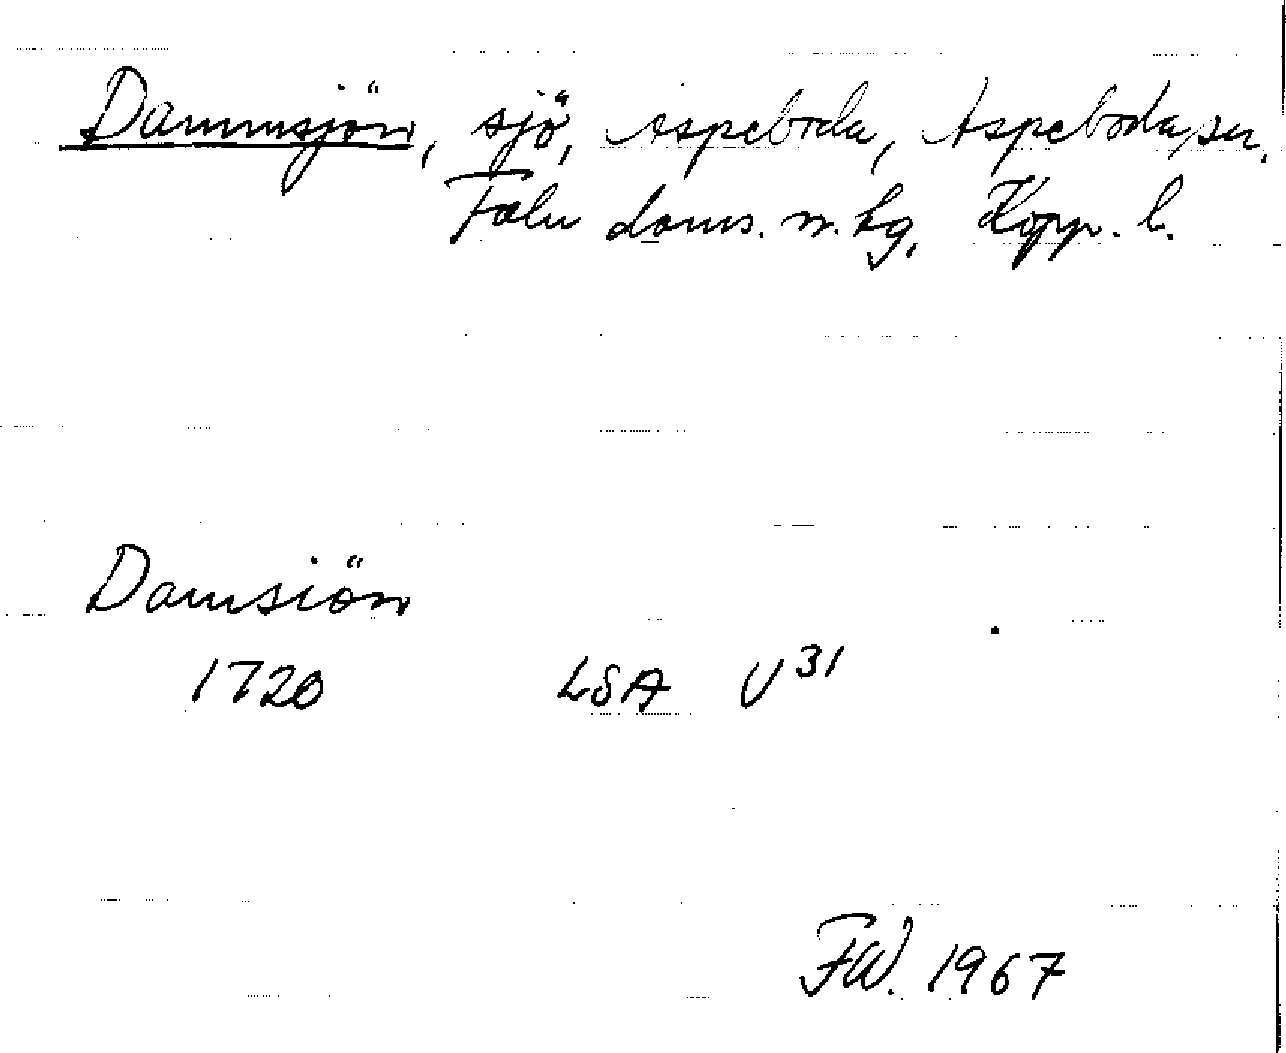 Dammsjön, sjö, Aspeboda, Aspeboda sn,
Falu doms. n. tg, Kopp. l.
Damsiön
1720 LSA U 31
FW. 1967